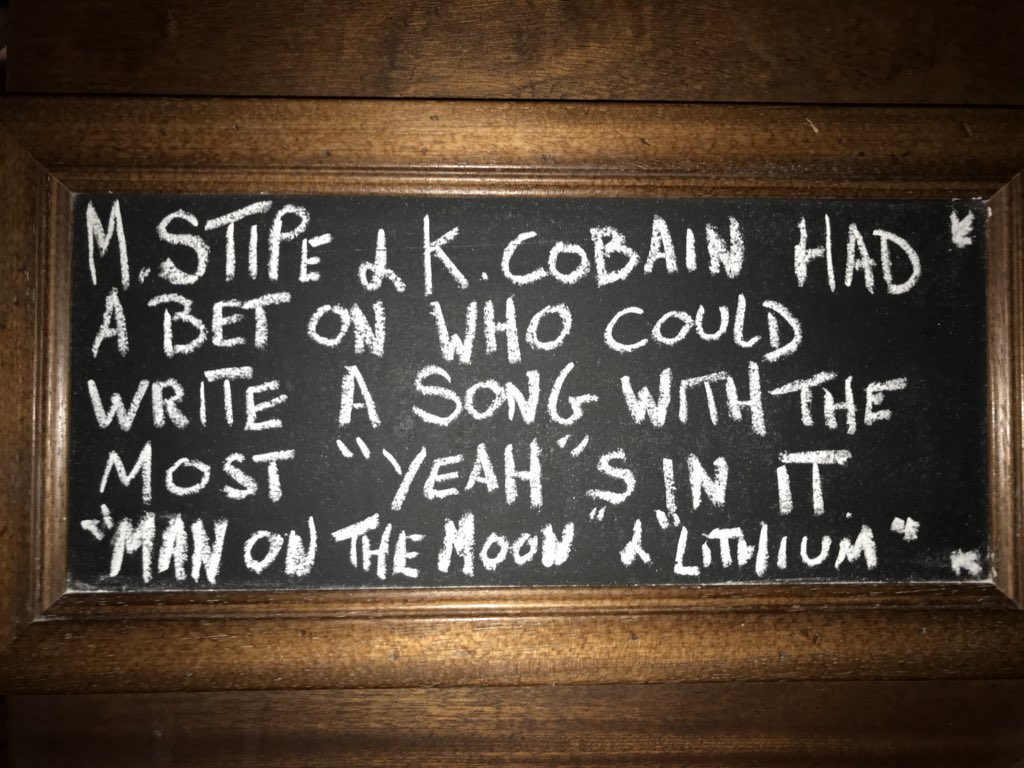 M. STIPE & K. COBAIN HAD
A BET ON WHO COULD
WRITE A SONG WITH THE
MOST "YEAH"S IN IT.
"MAN ON THE MOON" & "LITHIUM"